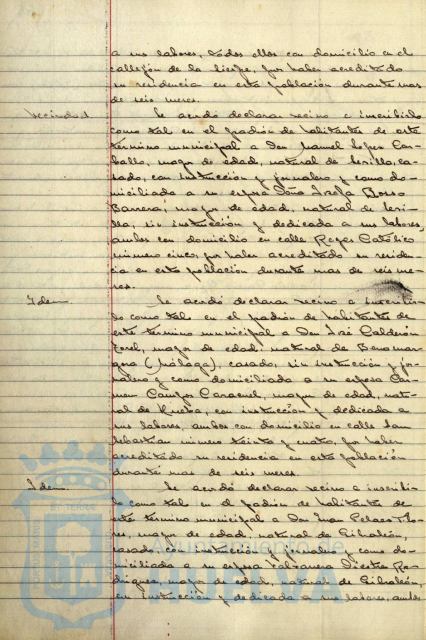 a sus labores, todos ellos con domicilio en el
callejón de la        , por haber acreditado
su residencia en esta población durante mas
de seis meses.
Vecindad
Se acordó declarar vecino e inscribirlo
como tal en el padrón de habitantes de este
término municipal a Don Manuel Lopez Car-
ballo, mayor de edad, natural de Sevilla, ca-
sado, con instrucción y jornalero y como do-
miciliada a su esposa Doña Josefa
Barrera, mayor de edad, natural de Sevi-
lla, sin instrucción y dedicada a sus labores,
ambos con domicilio en calle Reyes Católicos
número cinco, por haber acreditado su residen-
cia en esta población durante mas de seis me-
ses.
Idem
Se acordó declarar vecino e inscribir-
lo como tal en el padrón de habitantes de
este término municipal a Don José Calderón
mayor de edad, natural de Benamar-
gosa (Málaga), casado, sin instrucción y jor-
nalero y como domiciliada a su esposa Car-
men Campos Caracuel, mayor de edad, natu-
ral de Huelva, con instrucción y dedicada a
sus labores, ambos con domicilio en calle San
Sebastian número treinta y cuatro, por haber
acreditado su residencia en esta población
durante mas de seis meses.
Idem
Se acordó declarar vecino e inscribir-
lo como tal en el padrón de habitantes de
este término municipal a Don Juan Pelaez
mayor de edad, natural de Gibraleón,
casado, con instrucción y jornalero y como do-
miciliada a su esposa                 Ro-
driguez, mayor de edad, natural de Gibraleón,
sin instrucción y dedicada a sus labores, ambos
Ayuntamiento de
HUELVA